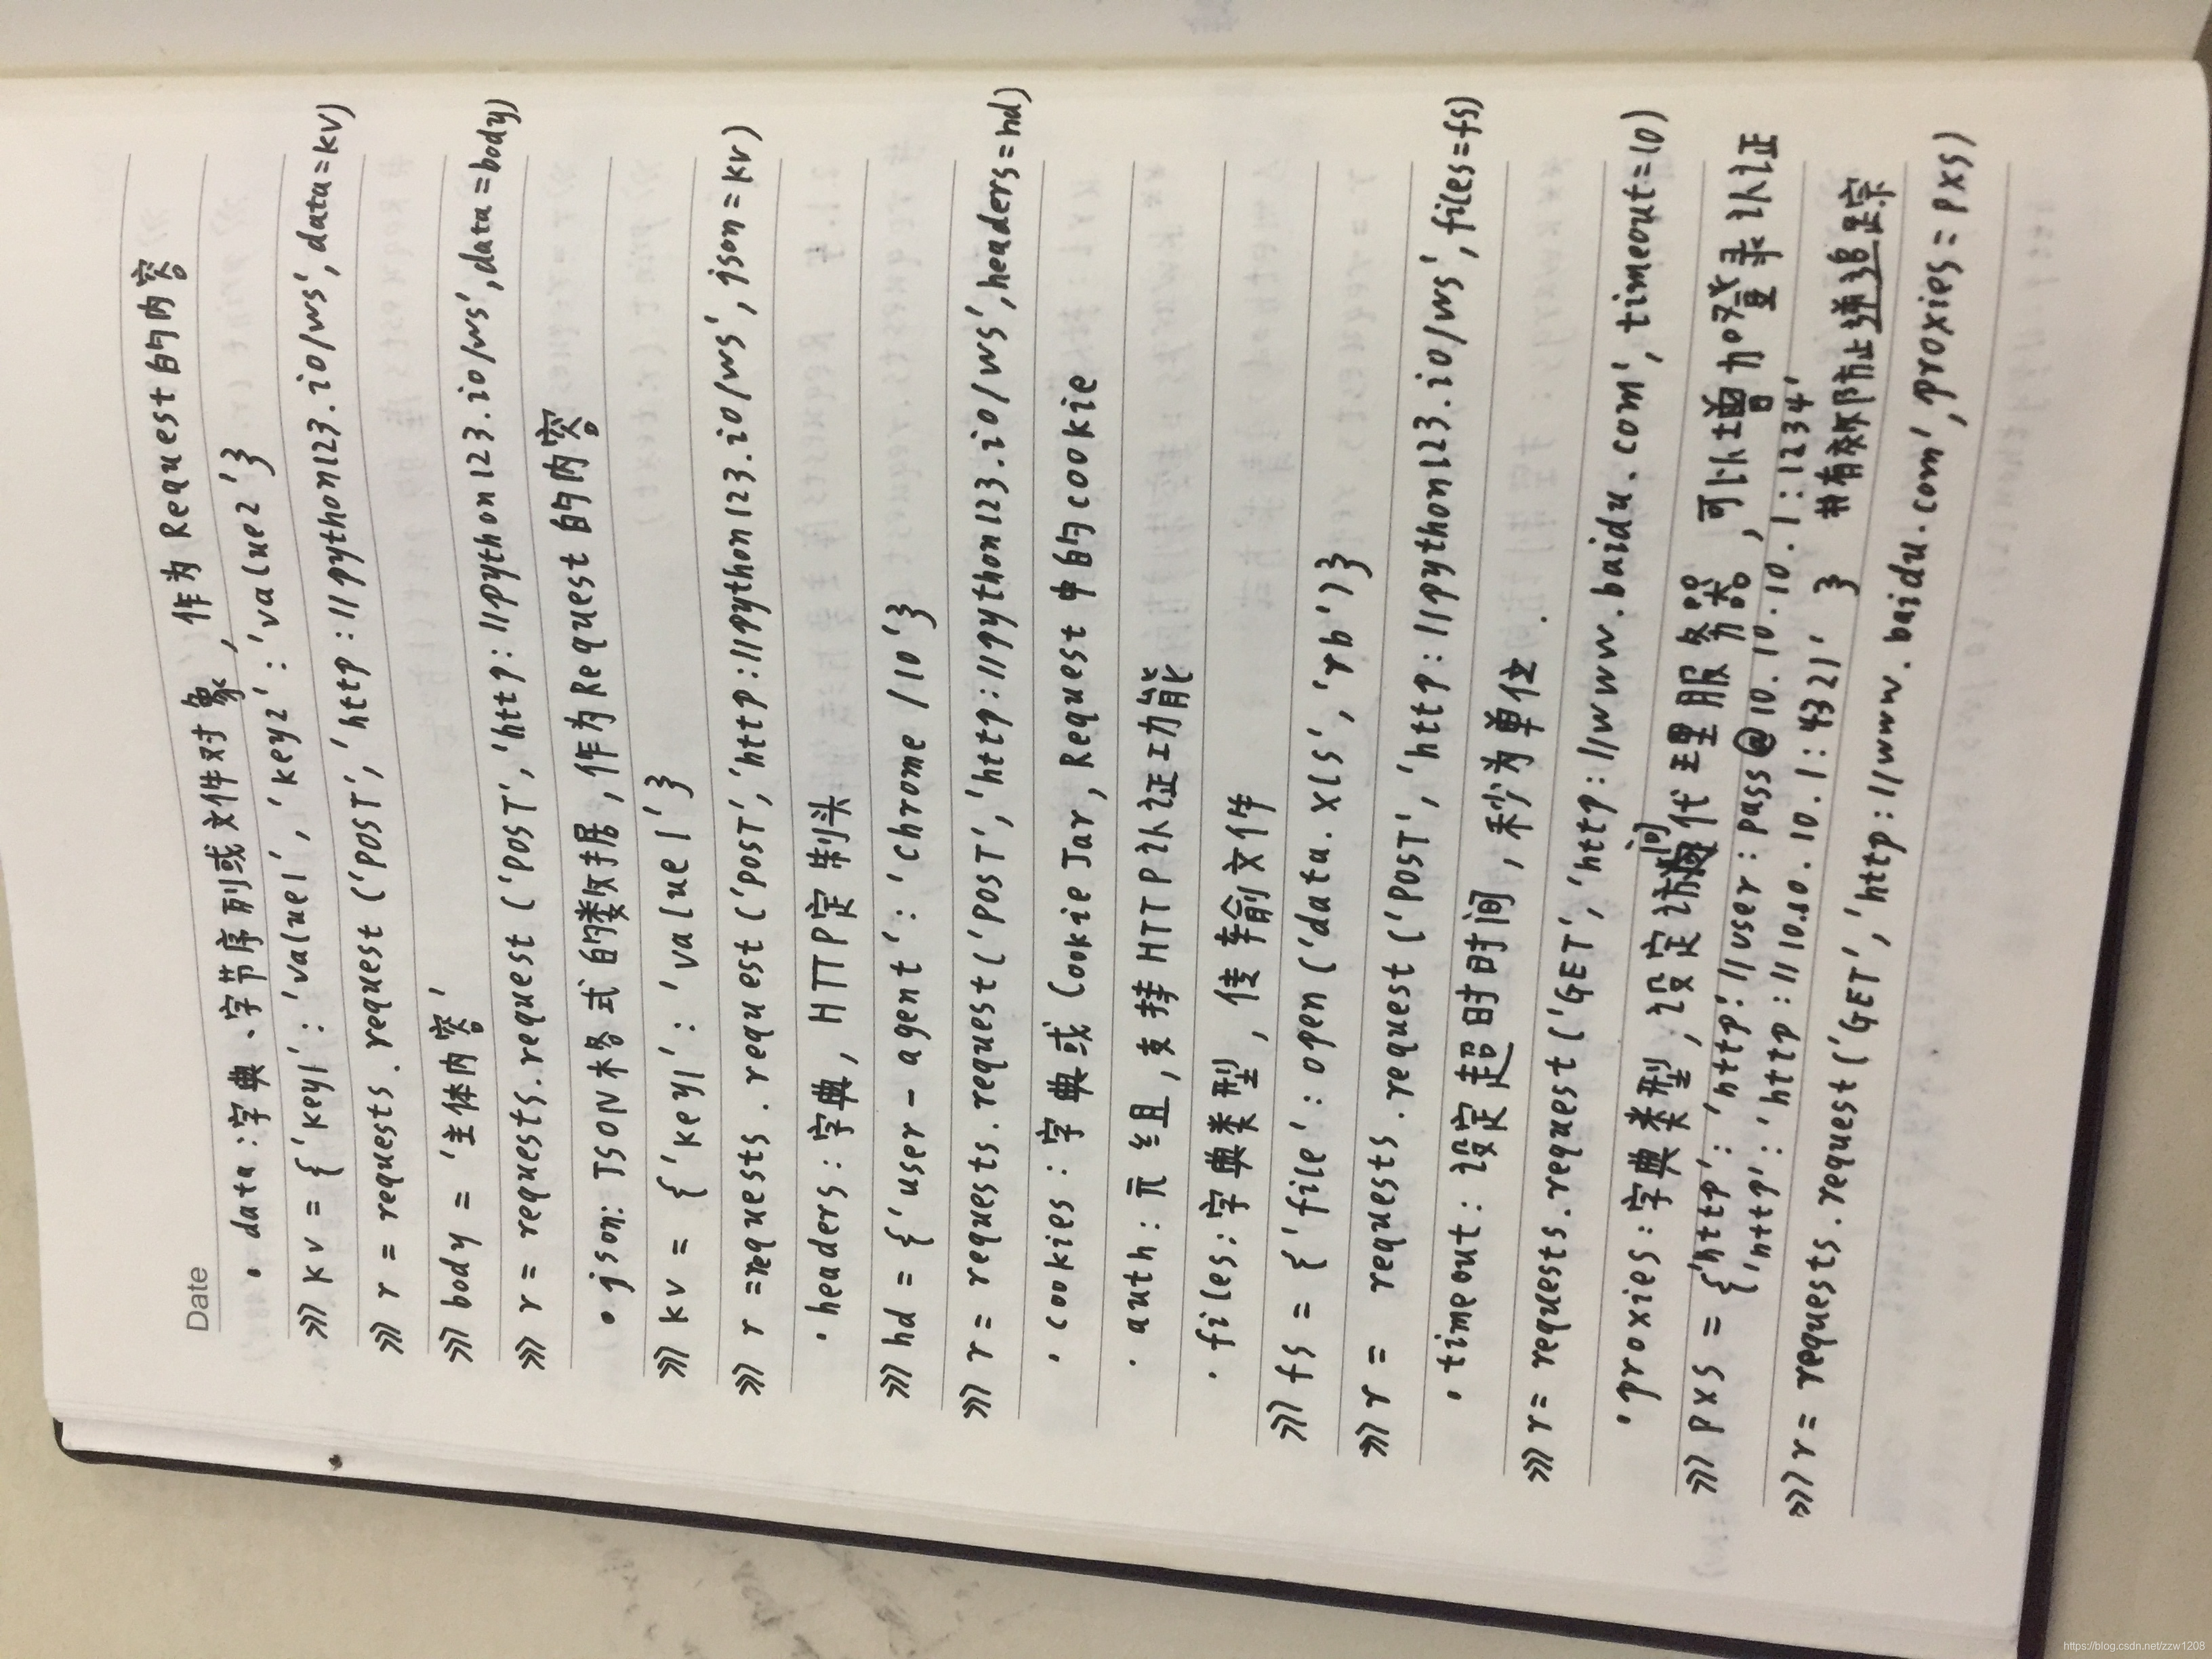 Date
· data:字典、字节序列或文件对象,作为Request的内容
>>> kv = {'key1':'value1','key2':'value2'}
>>> r = requests.request('POST','http://python123.io/ws',data=kv)
>>> body = '主体内容'
>>> r = requests.request('POST','http://python123.io/ws',data=body)
· json:JSON格式的数据,作为Request的内容
>>> kv = {'key1':'value1'}
>>> r = requests.request('POST','http://python123.io/ws',json=kv)
· headers:字典,HTTP定制头
>>> hd = {'user-agent':'chrome/10'}
>>> r = requests.request('POST','http://python123.io/ws',headers=hd)
· cookies:字典或CookieJar,Request中的cookie
· auth:元组,支持HTTP认证功能
· files:字典类型,传输文件
>>> fs = {'file':open('data.xls','rb')}
>>> r = requests.request('POST','http://python123.io/ws',files=fs)
· timeout:设定超时时间,秒为单位.
>>> r = requests.request('GET','http://www.baidu.com',timeout=10)
· proxies:字典类型,设定访问代理服务器,可以增加登录认证
>>> pxs = {'http':'http://user:pass@10.10.10.1:1234'
,'http':'http://10.10.10.1:4321' } #有效防止逆追踪
>>> r = requests.request('GET','http://www.baidu.com',proxies=pxs)
https://blog.csdn.net/zzw1208